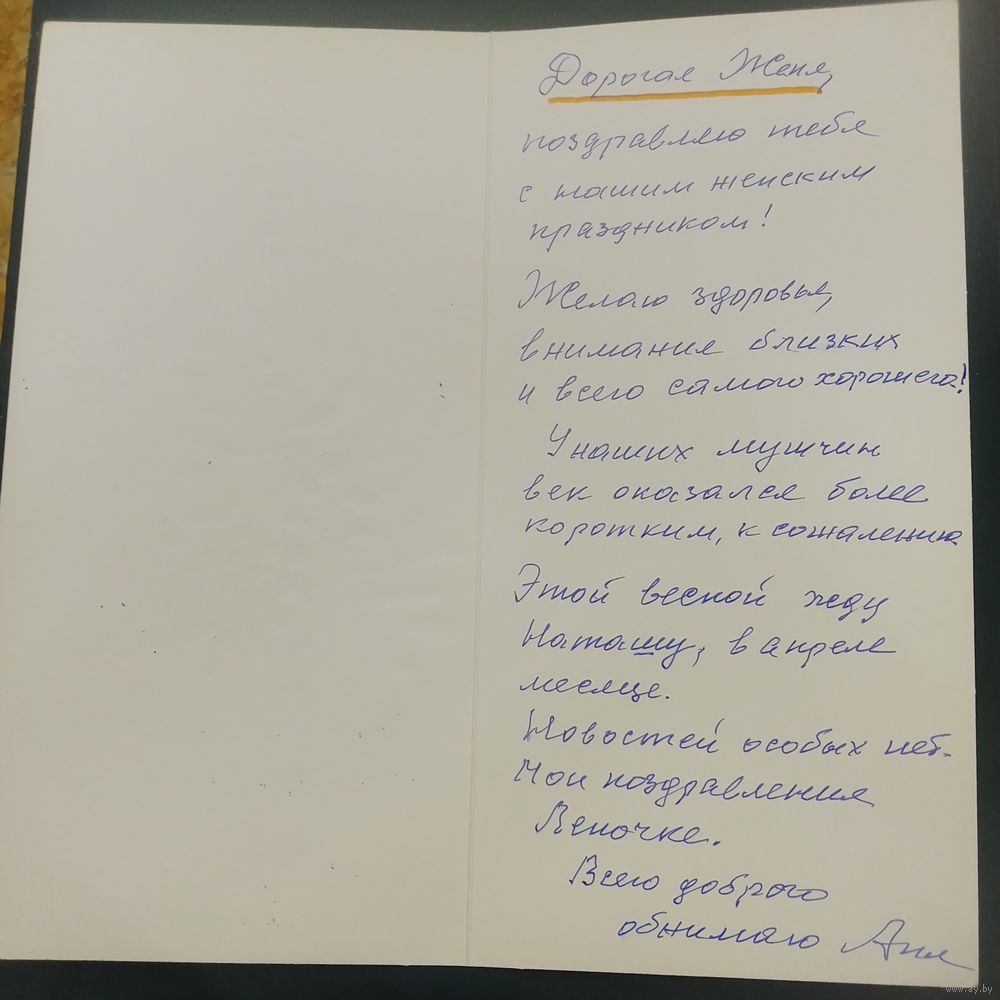 Дорогая Женя,
поздравляю тебя
с нашим женским
праздником!
Желаю здоровья,
внимания близких
и всего самого хорошего!
У наших мужчин
век оказался более
коротким, к сожалению
Этой весной жду
Наташу, в апреле
месяце.
Новостей особых нет.
Мои поздравления
Леночке.
Всего доброго
обнимаю Аня
www.ay.by